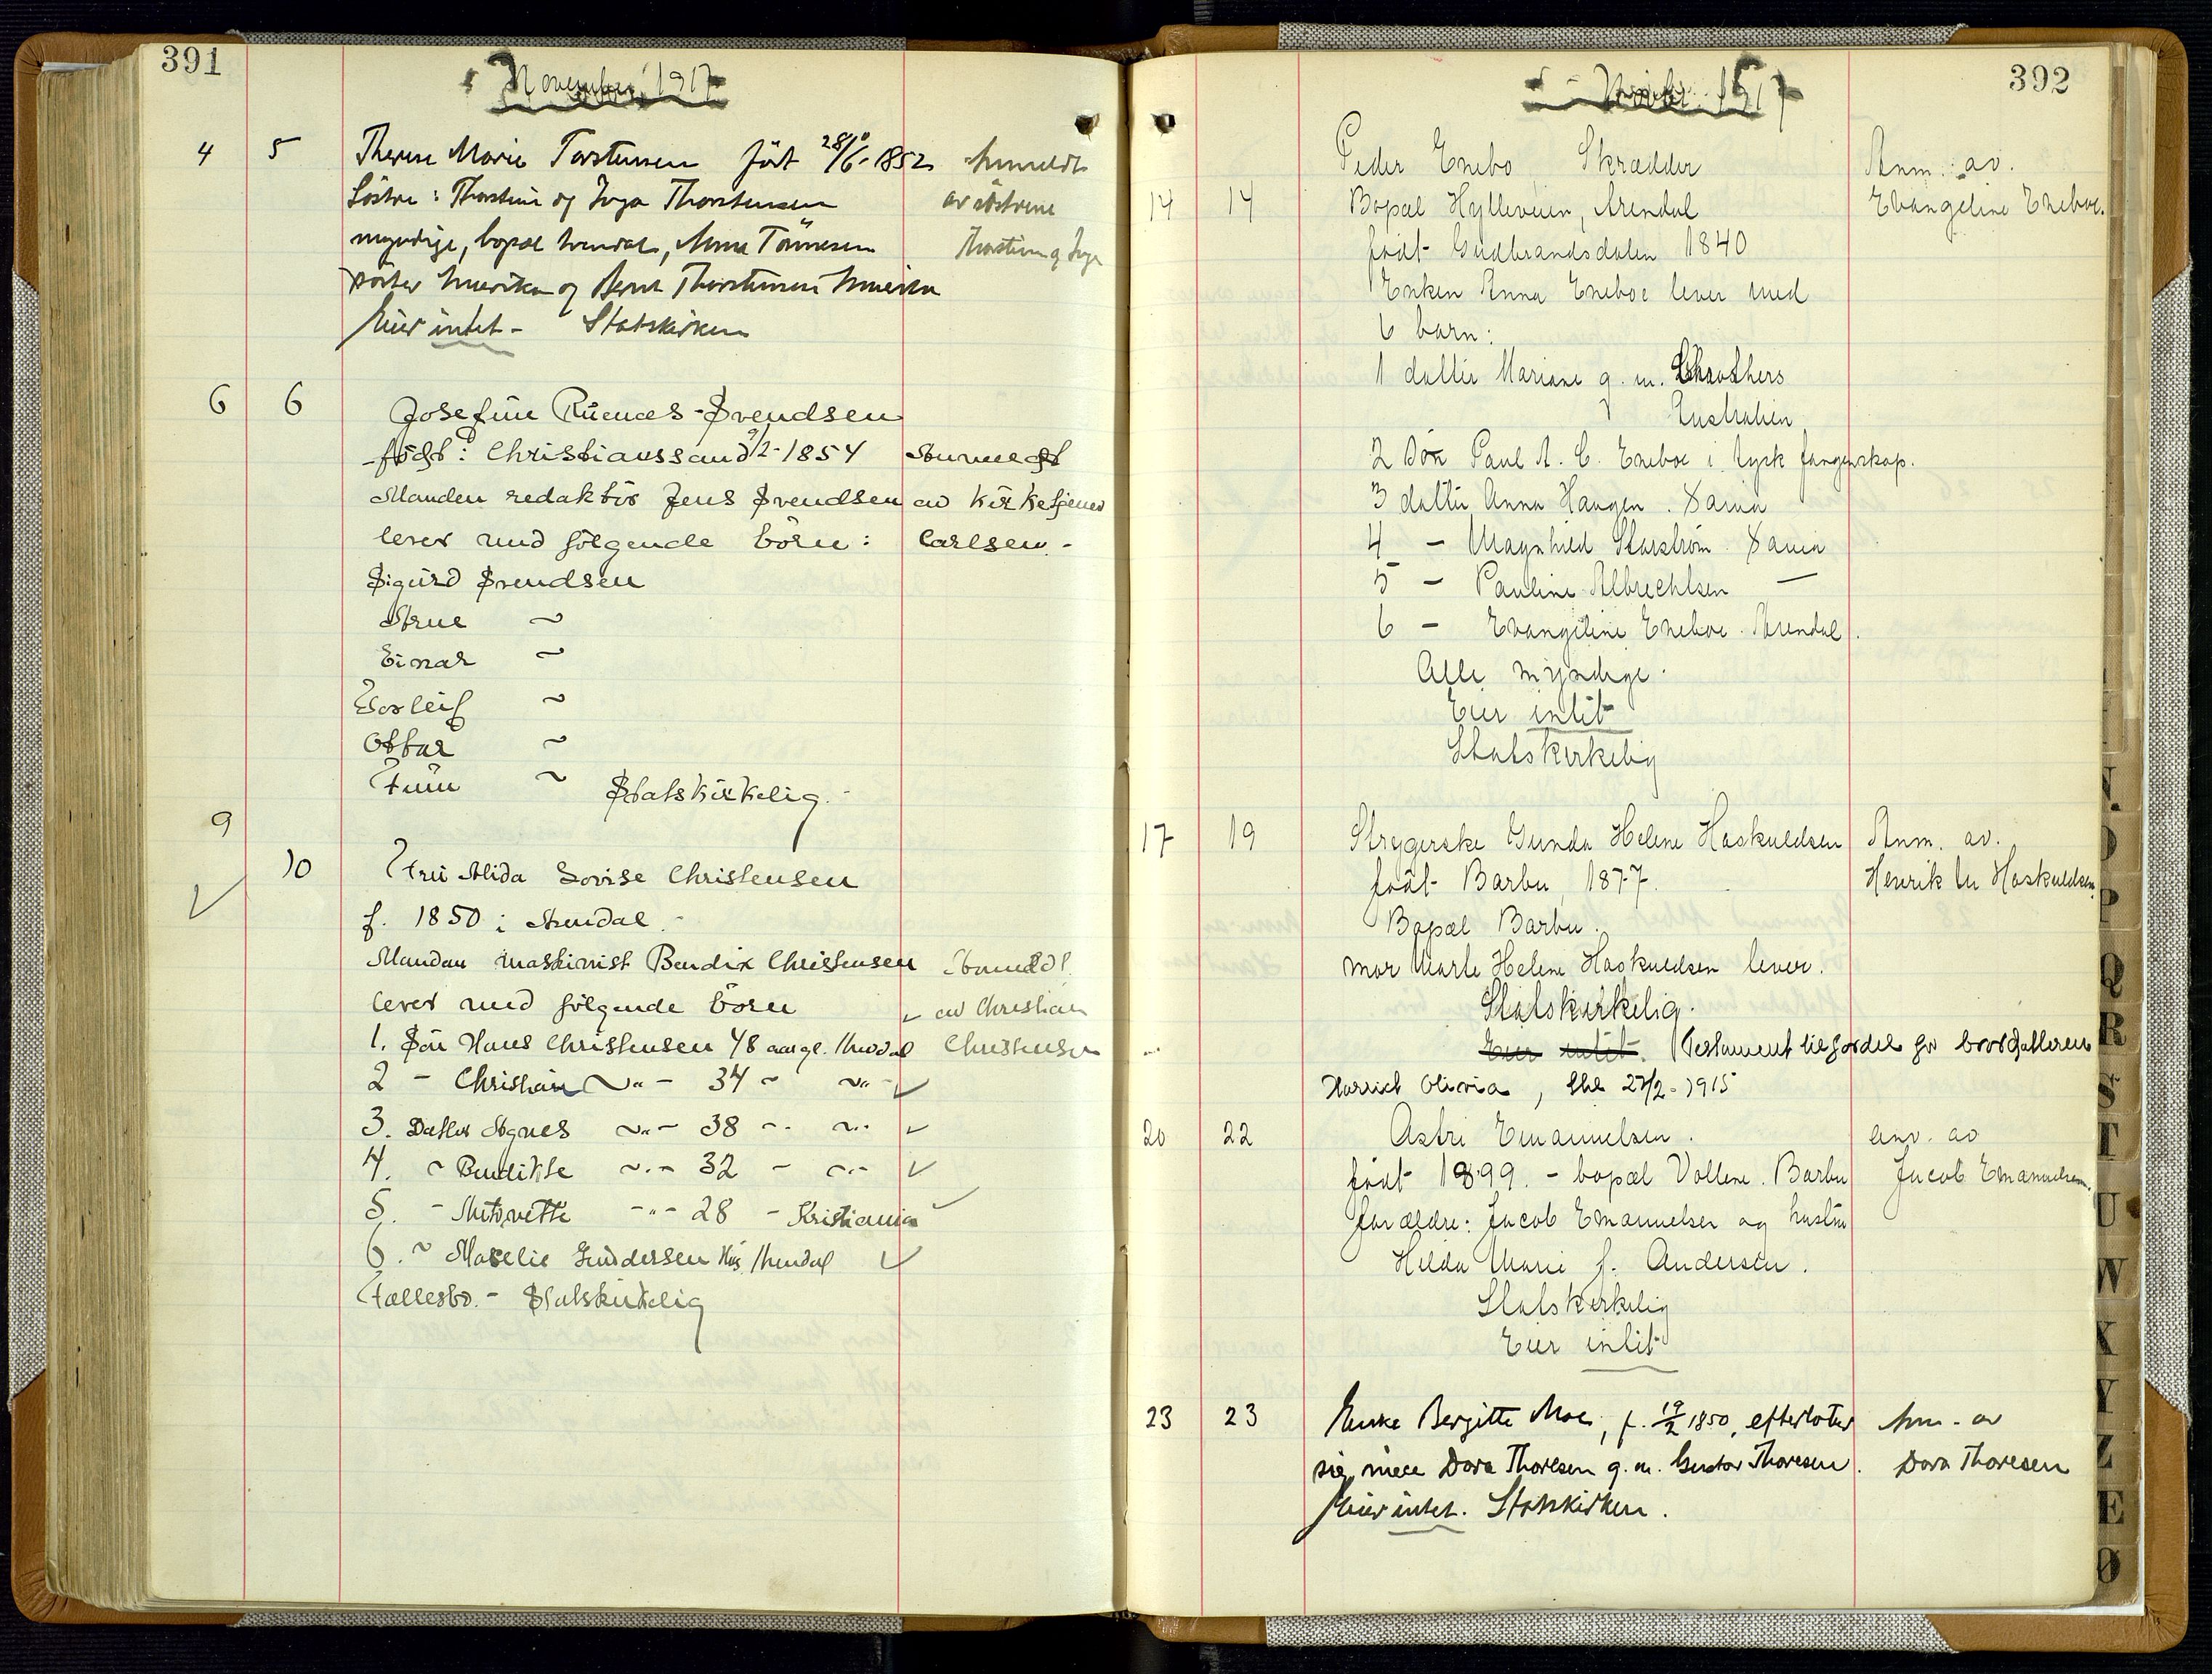 391
November 1917
4 5 Therese Marie Torstensen født 28/6-1852 Anmeldt
Søstre: Thorstine og Inga Thorstensen av søstrene
myndige, bopæl Arendal, Anna Tønnesen Thorstine og Inga
søster Amerika og Bernt Thorstensen Amerika
Eier intet - Statskirken
6 6 Josefine Ruenæs-Svendsen
født: Christianssand 9/2-1854 Anmeldt
Manden redaktør Jens Svendsen av Kirketjener
lever med følgende børn: Carlsen.-
Sigurd Svendsen
Arne ~
Einar ~
Torleif ~
Ottar ~
Finn ~ Statskirkelig.-
9 10 Fru Alida Lovise Christensen
f. 1850 i Arendal.-
Manden maskinist Bendix Christensen Anmeldt
lever med følgende børn av Christian
1. Søn Hans Christensen 48 aar gl. Arendal Christensen
2 - Christian ~"- 34 ~ ~"-
3. Datter Agnes ~"- 38 -. ~"-
4. ~ Bendikte ~"- 32 - ~"-
5. - Antonette -"- 28 - Kristiania
6. ~ Maselie Gundersen Hås Arendal
Fællesbo.- Statskirkelig
392
Novbr. 1917
Peder Enebo Skrædder Anm. av.
14 14 Bopæl Hylleveien, Arendal Evangeline Eneboe.
født Gudbrandsdalen 1840
Enken Anna Eneboe lever med
6 barn:
1 datter Mariane g. m. Strothers
Australien
2 Søn Paul A. C. Eneboe i tysk fangenskap.
3 datter Anna Haugen. Xania
4 - Magnhild Starstrøm. Xania
5 - Pauline Albrechtsen —
6 - Evangeline Eneboe. Arendal.
Alle myndige.
Eier intet
Statskirkelig
17 19 Strygerske Gunda Helene Haskuldsen Anm. av.
født Barbu 1877. Henrik M Haskuldsen.
Bopæl Barbu.
mor Marte Helene Haskuldsen lever.
Statskirkelig.
Eier intet. Testament til fordel for brordatteren
Harriet Olivia, 27/2-1915
20 22 Astri Emanuelsen. anm. av
født 1899. - bopæl Vollene. Barbu Jacob Emanuelsen.
forældre: Jacob Emanuelsen og hustru
Hilda Marie f. Andersen.
Statskirkelig
Eier intet
23 23 Enke Bergitte Moe, f. 19/2 1850, efterlater Anm. av
sig niece Dora Thoresen g. m. Gustav Thoresen. Dora Thoresen
Eier intet. Statskirken.
N.
O
P
Q
R
S
T
U
W
X
Y
Z
Æ
Ø